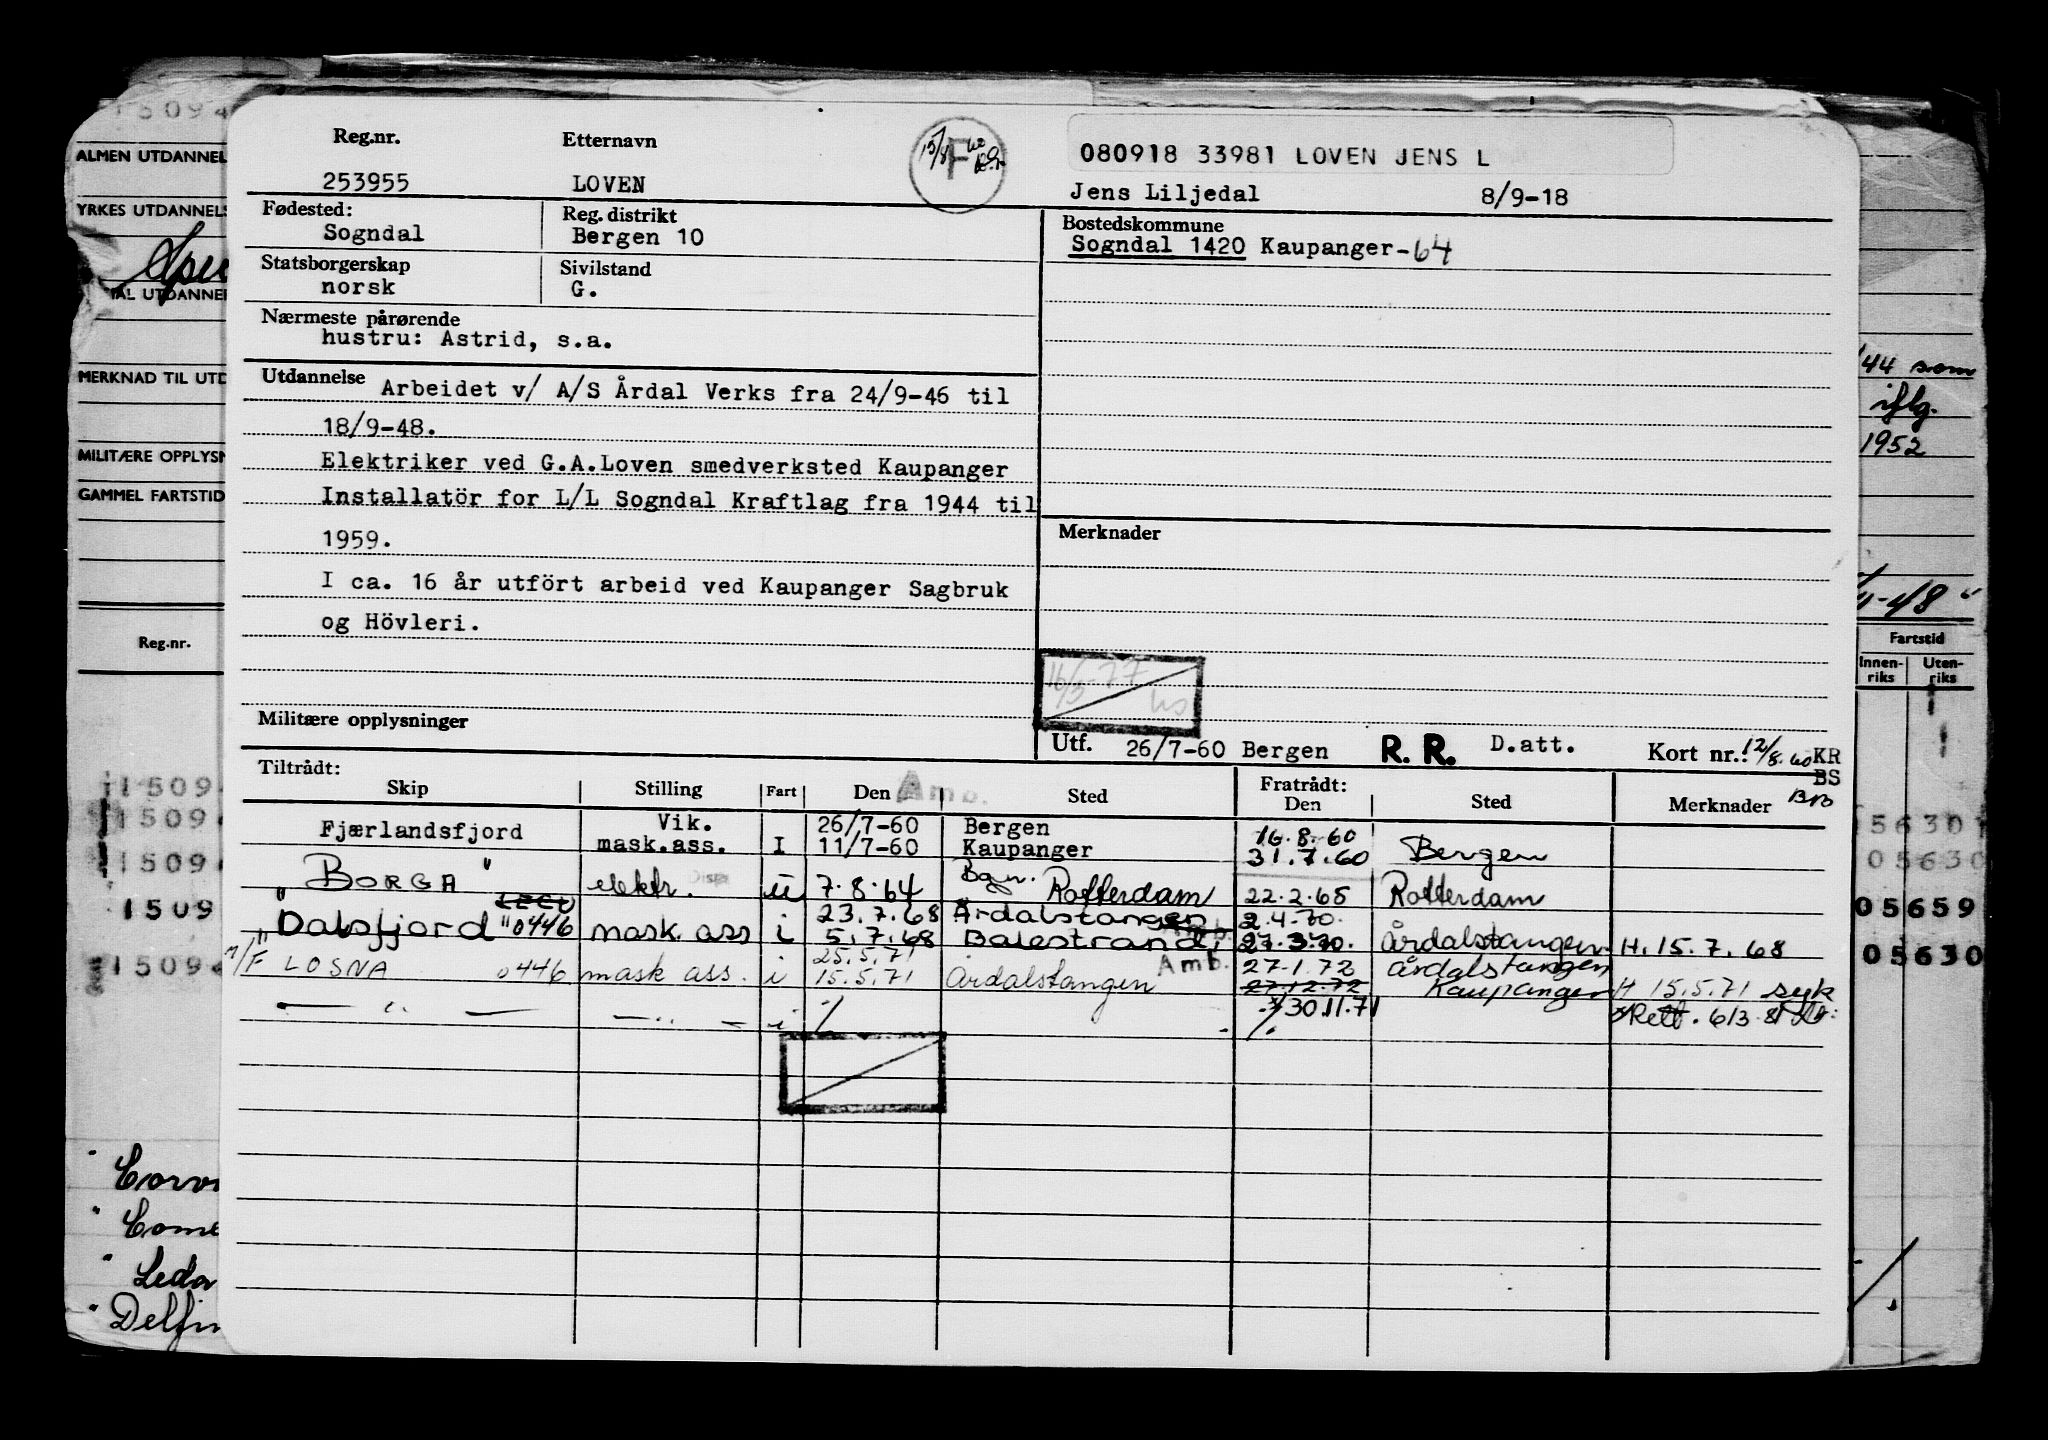 Reg.nr. Etternavn
253955 LOVEN
15/8 60 F
080918 33981 LOVEN JENS L
Jens Liljedal 8/9-18
Fødested: Sogndal
Reg. distrikt Bergen 10
Statsborgerskap norsk
Sivilstand G.
Nærmeste pårørende
hustru: Astrid, s.a.
Bostedskommune
Sogndal 1420 Kaupanger-64
Utdannelse Arbeidet v/ A/S Årdal Verks fra 24/9-46 til
18/9-48.
Elektriker ved G.A.Loven smedverksted Kaupanger
Installatör for L/L Sogndal Kraftlag fra 1944 til
1959.
I ca. 16 år utfört arbeid ved Kaupanger Sagbruk
og Hövleri.
Merknader
16/3-77
Militære opplysninger
Utf. 26/7-60 Bergen R. R. D.att. Kort nr.: 12/8.60 KR
BS
Tiltrådt: Fratrådt:
Skip Stilling Fart Den Amb. Sted Den Sted Merknader
Fjærlandsfjord Vik. 26/7-60 Bergen 16.8.60
mask.ass. I 11/7-60 Kaupanger 31.7.60 Bergen
" BORGA " elektr. u 7.8.64 Bgn. Rotterdam 22.2.65 Rotterdam
23.7.68 Årdalstangen 2.4.70.
"Dalsfjord" 0446 mask. ass i 5.7.68 Balestrand, 27.3.70. Årdalstangen H.15.7.68
25.5.71 Amb. 27.1.72 Årdalstangen
M/F LOSNA 0446 mask ass. i 15.5.71 Årdalstangen 27.12.72 Kaupanger H 15.5.71 syk
— " — — " — i % 30.11.71 Rett. 6/3
%
ALMEN UTDANNEL
YRKES UTDANNELS
IAL UTDANNEL
MERKNAD TIL UTD
MILITÆRE OPPLYSN
GAMMEL FARTSTID
Reg.nr.
15094
15094
15094
15094
1509
15094
" Corv
" Come
" Leda
" Delfin
44 som
iflg.
1952
11-48 "
Fartstid
Innen-riks Uten-riks
56301
05630
05659
05630